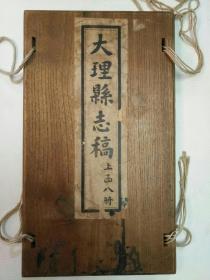 大理縣志稿
上函八冊